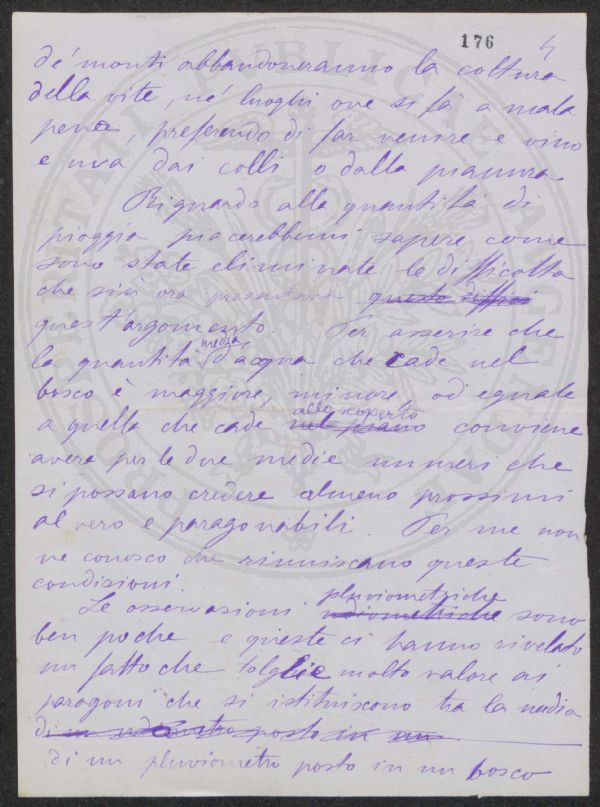 176 4
de' monti abbandoneranno la coltura
della vite, ne' luoghi ove si fà a mala
pena, preferendo di far venire e vino
e uva dai colli o dalla pianura.
Riguardo alla quantità di
pioggia piacerebbemi sapere come
sono state eliminate le difficoltà
che sin' ora presentava questo diffici
quest'argomento. Per asserire che
la quantità media d'acqua che cade nel
bosco è maggiore, minore, od eguale
a quella che cade nel piano allo scoperto conviene
avere per le due medie numeri che
si possano credere almeno prossimi
al vero e paragonabili. Per me non
ne conosco che riuniscano queste
condizioni.
Le osservazioni udiometriche pluviometriche sono
ben poche e queste ci hanno rivelato
un fatto che toglie molto valore ai
paragoni che si istituiscono tra la media
di un udometro posto in un
di un pluviometro posto in un bosco
PROSPERITATI PUBLICAE AUGENDAE